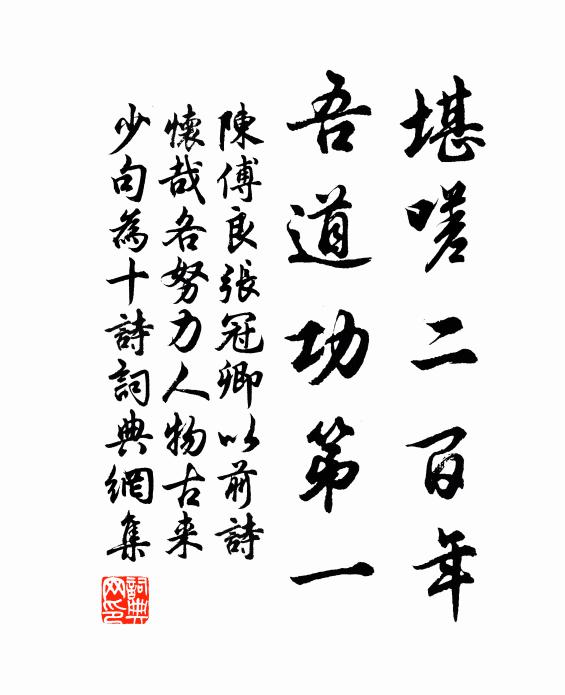 堪嗟二百年
吾道功第一
陳傅良張冠卿以前詩
懷哉各努力人物古来
少句為十詩詞典網集
詞典網印